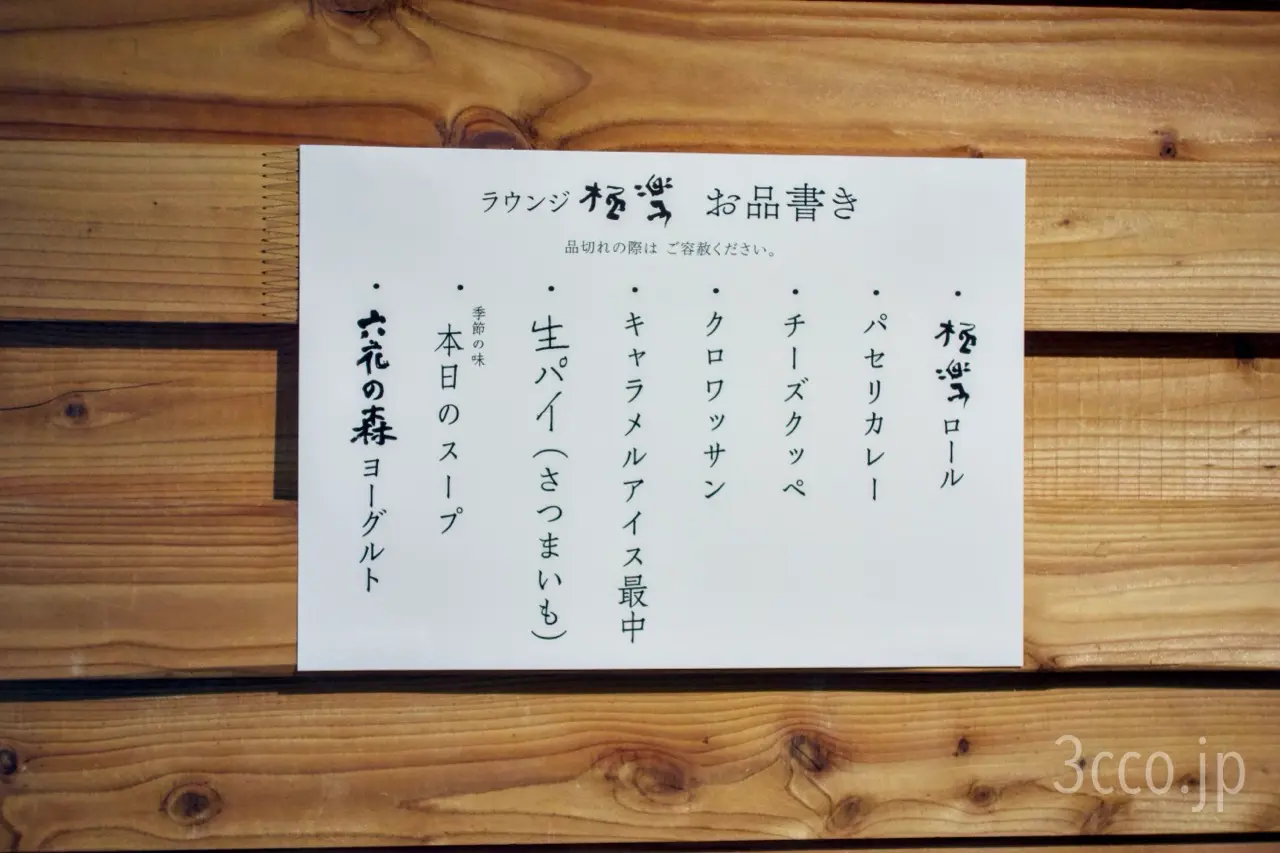 ラウンジ 極楽 お品書き
品切れの際は ご容赦ください。
・極楽ロール
・パセリカレー
・チーズクッペ
・クロワッサン
・キャラメルアイス最中
・生パイ（さつまいも）
季節の味
・本日のスープ
・六花の森ヨーグルト
3cco.jp